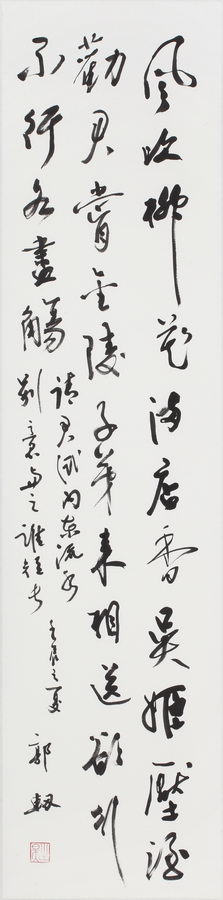 風吹柳花滿店香吳姬壓酒
勸君嘗金陵子弟來相送欲行
不行各盡觴
請君試問東流水
別意與之誰短長
壬辰之夏
郭